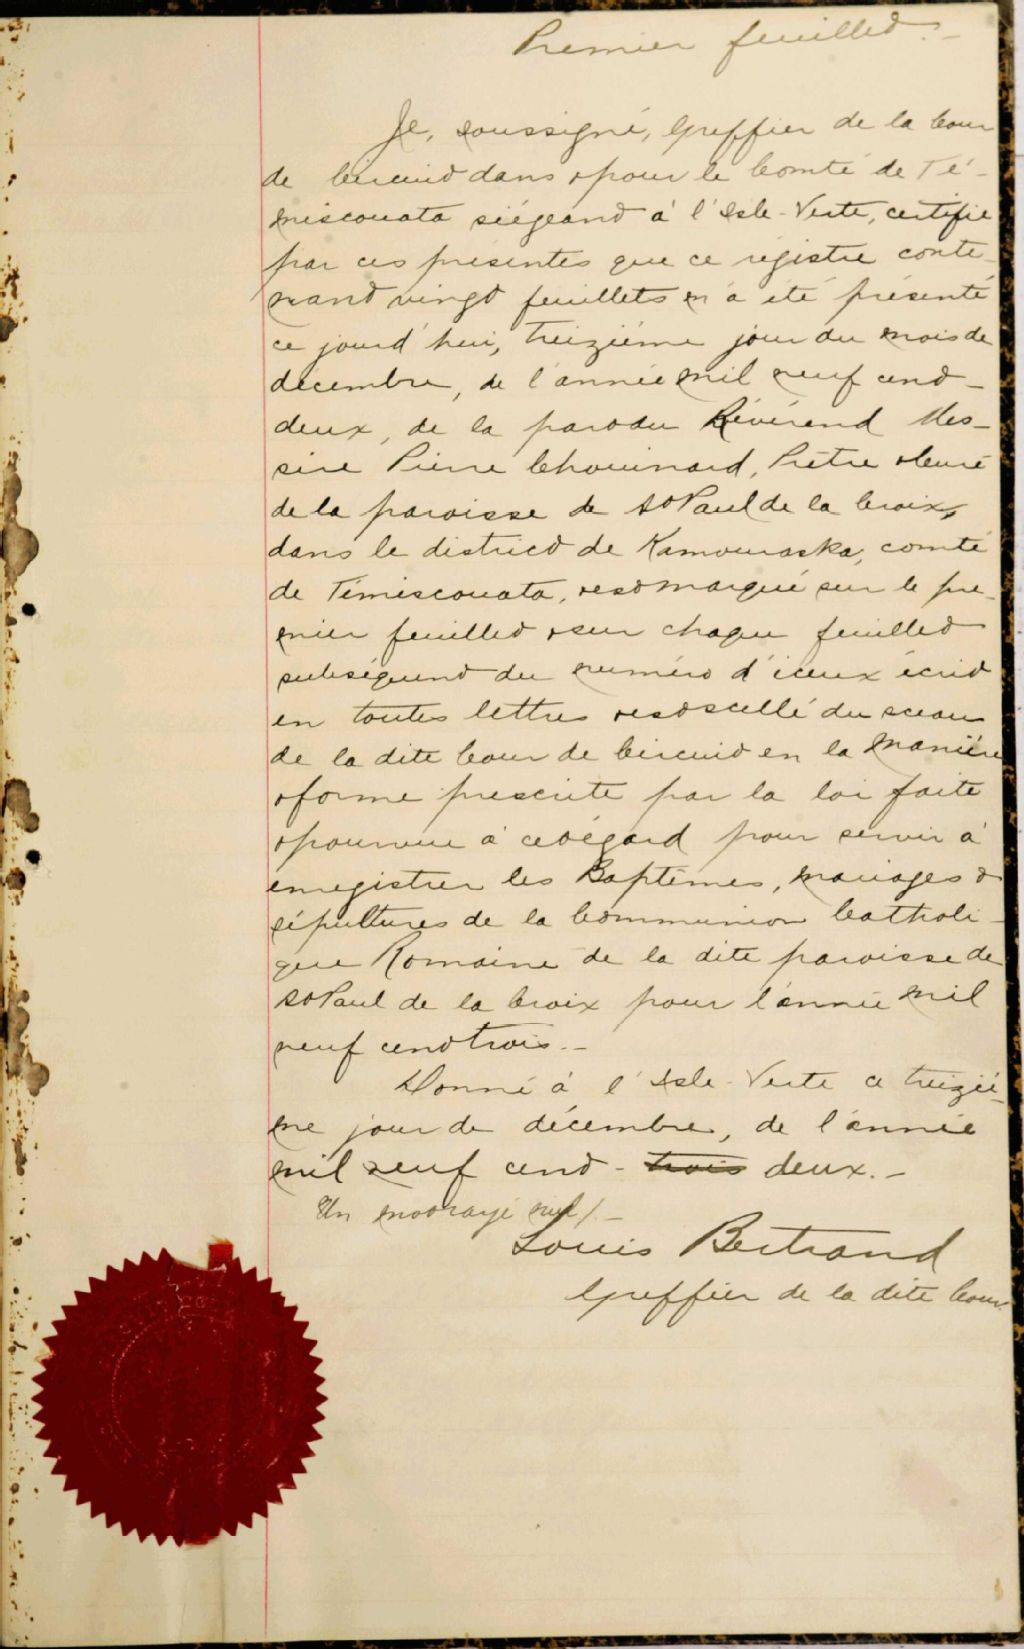 Premier feuillet.-
Je, soussigné, Greffier de la Cour
de Circuit dans & pour le Comté de Té-
miscouata siégeant à l'Isle-Verte, certifie
par ces présentes que ce régistre conte-
nant vingt feuillets m'a été présenté
ce jourd'hui, treizième jour du mois de
décembre, de l'année mil neuf cent-
deux, de la part du Révérend Mes-
sire Pierre Chouinard, Prêtre & Curé
de la paroisse de St Paul de la Croix,
dans le district de Kamouraska, comté
de Témiscouata, & est marqué sur le pre-
mier feuillet & sur chaque feuillet
subséquent du numéro d'iceux écrit
en toutes lettres & est scellé du sceau
de la dite Cour de Circuit en la manière
& forme prescrite par la loi faite
& pourvue à cet égard pour servir à
enregistrer les Baptêmes, mariages &
sépultures de la Communion Catholi-
que Romaine de la dite paroisse de
St Paul de la Croix pour l'année mil
neuf cent trois.-
Donné à l'Isle-Verte ce treiziè-
me jour de décembre, de l'année
mil neuf cent-trois deux.-
Un mot rayé nul/.-
Louis Bertrand
Greffier de la dite Cour.